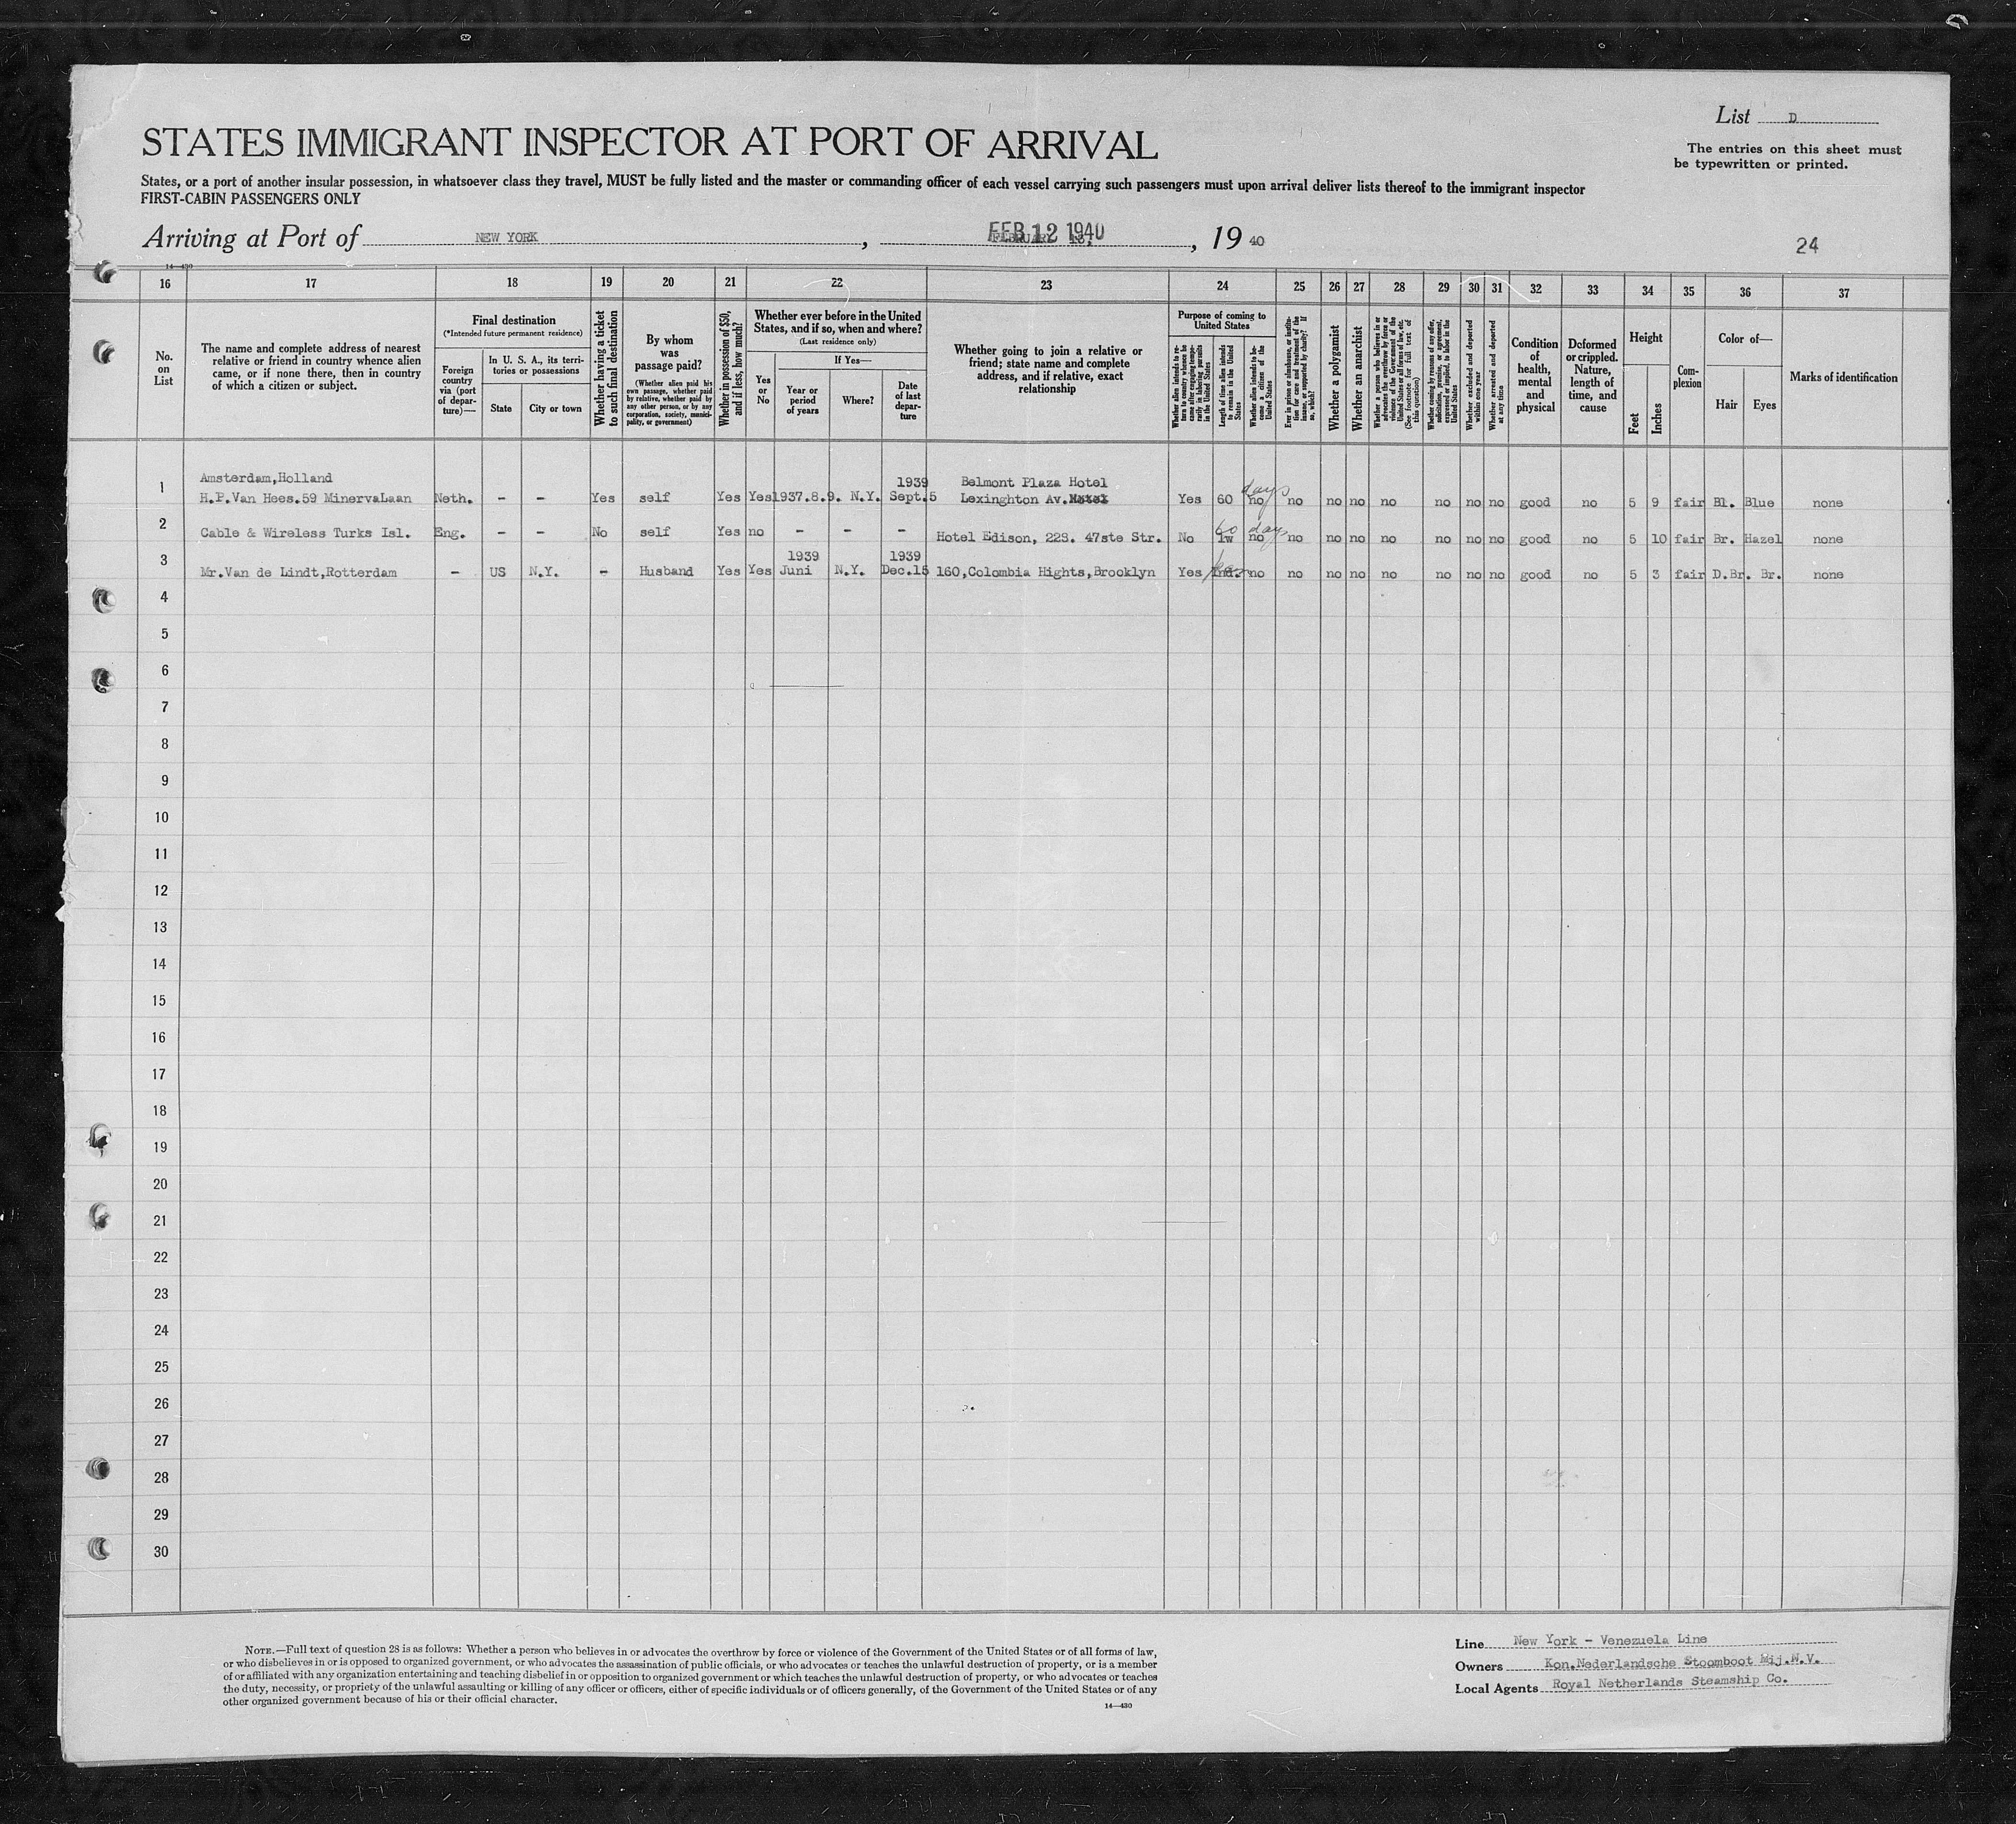 List D
The entries on this sheet must
be typewritten or printed.
STATES IMMIGRANT INSPECTOR AT PORT OF ARRIVAL
States, or a port of another insular possession, in whatsoever class they travel, MUST be fully listed and the master or commanding officer of each vessel carrying such passengers must upon arrival deliver lists thereof to the immigrant inspector
FIRST-CABIN PASSENGERS ONLY
Arriving at Port of NEW YORK, FEB 12 1940, 19 40
24
14—430
16 17 18 19 20 21 22 23 24 25 26 27 28 29 30 31 32 33 34 35 36 37
No.
on
List
The name and complete address of nearest
relative or friend in country whence alien
came, or if none there, then in country
of which a citizen or subject.
Final destination
(*Intended future permanent residence)
Foreign
country
via (port
of depar-
ture)—
In U. S. A., its terri-
tories or possessions
State
City or town
Whether having a ticket
to such final destination
By whom
was
passage paid?
(Whether alien paid his
own passage, whether paid
by relative, whether paid by
any other person, or by any
corporation, society, munici-
pality, or government)
Whether in possession of $50,
and if less, how much?
Whether ever before in the United
States, and if so, when and where?
(Last residence only)
Yes
or
No
If Yes—
Year or
period
of years
Where?
Date
of last
depar-
ture
Whether going to join a relative or
friend; state name and complete
address, and if relative, exact
relationship
Purpose of coming to
United States
Whether alien intends to re-
turn to country whence he
came after engaging tempo-
rarily in laboring pursuits
in the United States
Length of time alien intends
to remain in the United
States
Whether alien intends to be-
come a citizen of the
United States
Ever in prison or almshouse, or institu-
tion for care and treatment of the
insane, or supported by charity? If
so, which?
Whether a polygamist
Whether an anarchist
Whether a person who believes in or
advocates the overthrow by force or
violence of the Government of the
United States or all forms of law, etc.
(See footnote for full text of
this question)
Whether coming by reasons of any offer,
solicitation, promise, or agreement,
expressed or implied, to labor in the
United States
Whether excluded and deported
within one year
Whether arrested and deported
at any time
Condition
of
health,
mental
and
physical
Deformed
or crippled.
Nature,
length of
time, and
cause
Height
Feet
Inches
Com-
plexion
Color of—
Hair
Eyes
Marks of identification
Amsterdam,Holland 1939 Belmont Plaza Hotel days
1 H.P.Van Hees.59 MinervaLaan Neth. - - Yes self Yes Yes 1937.8.9. N.Y. Sept.5 Lexinghton Av. Yes 60 no no no no no no no no good no 5 9 fair Bl. Blue none
60 days
2 Cable & Wireless Turks Isl. Eng. - - No self Yes no - - - Hotel Edison, 228. 47ste Str. No 1w no no no no no no no no good no 5 10 fair Br. Hazel none
1939 1939
3 Mr.Van de Lindt,Rotterdam - US N.Y. - Husband Yes Yes Juni N.Y. Dec.15 160,Colombia Hights,Brooklyn Yes no no no no no no no no good no 5 3 fair D.Br. Br. none
4
5
6
7
8
9
10
11
12
13
14
15
16
17
18
19
20
21
22
23
24
25
26
27
28
29
30
NOTE.—Full text of question 28 is as follows: Whether a person who believes in or advocates the overthrow by force or violence of the Government of the United States or of all forms of law,
or who disbelieves in or is opposed to organized government, or who advocates the assassination of public officials, or who advocates or teaches the unlawful destruction of property, or is a member
of or affiliated with any organization entertaining and teaching disbelief in or opposition to organized government or which teaches the unlawful destruction of property, or who advocates or teaches
the duty, necessity, or propriety of the unlawful assaulting or killing of any officer or officers, either of specific individuals or of officers generally, of the Government of the United States or of any
other organized government because of his or their official character.
14—430
Line New York - Venezuela Line
Owners Kon.Nederlandsche Stoomboot Mij.N.V.
Local Agents Royal Netherlands Steamship Co.